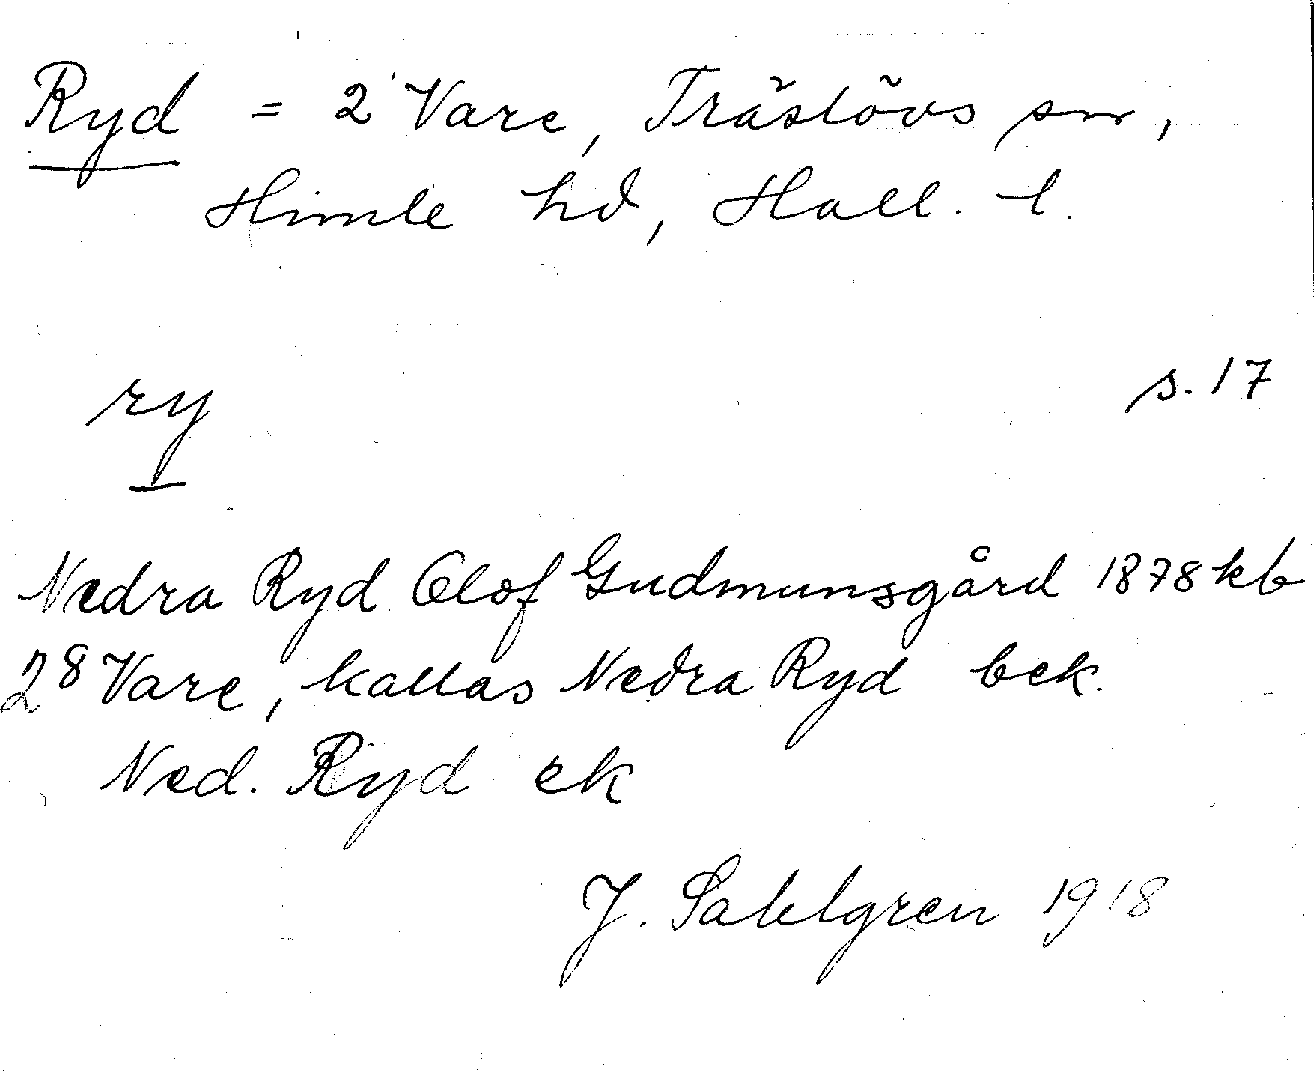 Ryd = 2 Vare, Träslövs sn,
Himle hd, Hall. l.
ry s. 17
Nedra Ryd Olof Gudmunsgård 1878 kb
2⁸ Vare, kallas Nedra Ryd bek.
Ned. Ryd ek
J. Sahlgren 1918